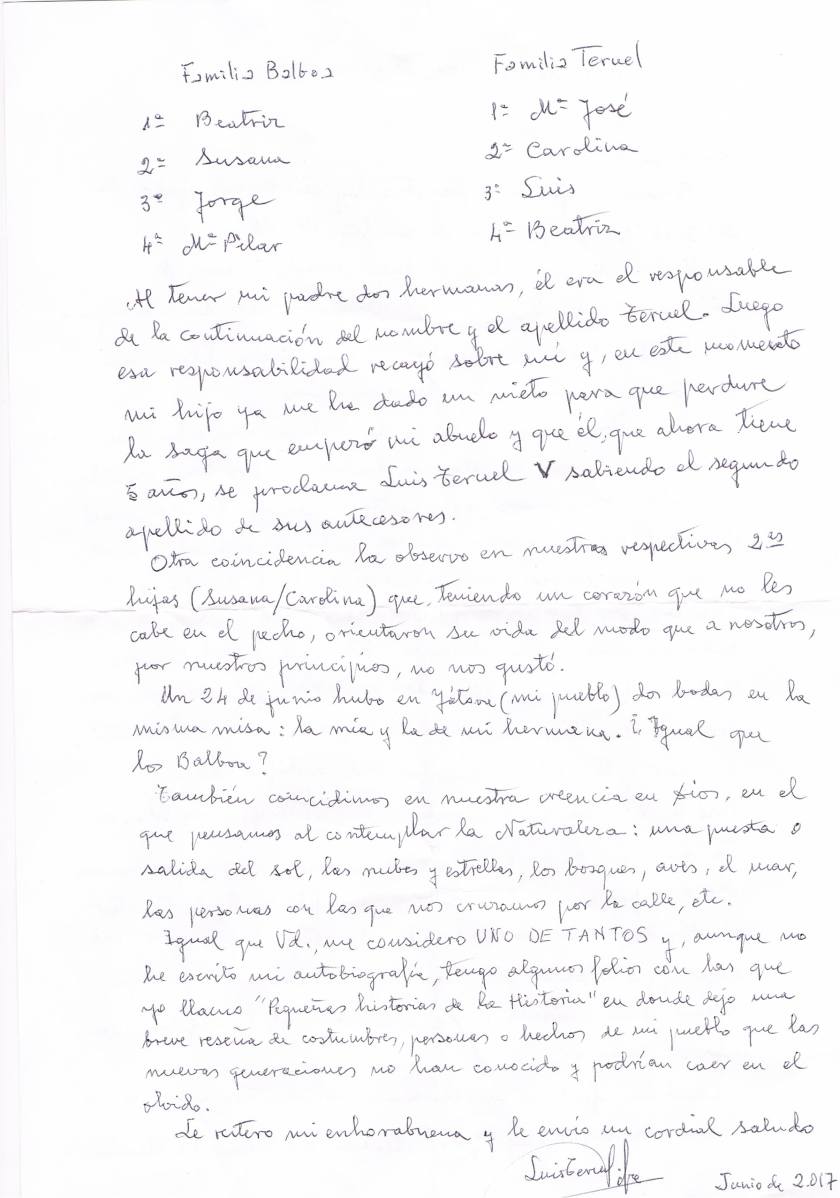 Familia Balboa Familia Teruel
1ª Beatriz 1ª Mª José
2ª Susana 2ª Carolina
3º Jorge 3º Luis
4ª Mª Pilar 4ª Beatriz
Al tener mi padre dos hermanas, él era el responsable
de la continuación del nombre y el apellido Teruel. Luego
esa responsabilidad recayó sobre mí y, en este momento
mi hijo ya me ha dado un nieto para que perdure
la saga que empezó mi abuelo y que él, que ahora tiene
5 años, se proclama Luis Teruel V sabiendo el segundo
apellido de sus antecesores.
Otra coincidencia la observo en nuestras respectivas 2ªs
hijas (Susana/Carolina) que, teniendo un corazón que no les
cabe en el pecho, orientaron su vida del modo que a nosotros,
por nuestros principios, no nos gustó.
Un 24 de junio hubo en Yátova (mi pueblo) dos bodas en la
misma misa: la mía y la de mi hermana. ¿Igual que
los Balboa?
También coincidimos en nuestra creencia en Dios, en el
que pensamos al contemplar la Naturaleza: una puesta o
salida del sol, las nubes y estrellas, los bosques, aves, el mar,
las personas con las que nos cruzamos por la calle, etc.
Igual que Vd., me considero UNO DE TANTOS y, aunque no
he escrito mi autobiografía, tengo algunos folios con las que
yo llamo "Pequeñas historias de la Historia" en donde dejo una
breve reseña de costumbres, personas o hechos de mi pueblo que las
nuevas generaciones no han conocido y podrían caer en el
olvido.
Le reitero mi enhorabuena y le envío un cordial saludo
Luis Teruel
Junio de 2.017